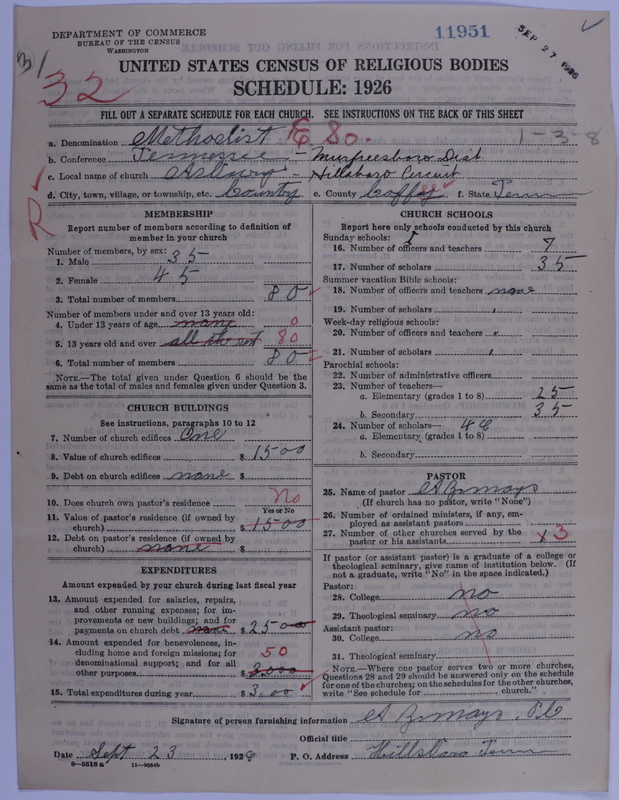 DEPARTMENT OF COMMERCE
BUREAU OF THE CENSUS
WASHINGTON
11951
SEP 27 1926
31
32
UNITED STATES CENSUS OF RELIGIOUS BODIES
SCHEDULE: 1926
FILL OUT A SEPARATE SCHEDULE FOR EACH CHURCH. SEE INSTRUCTIONS ON THE BACK OF THIS SHEET
a. Denomination Methodist E So. 1-3-8
b. Conference Tennessee - Murfreesboro Dist
c. Local name of church Asbury - Hillsboro Circuit
d. City, town, village, or township, etc. County e. County Coffey f. State Tenn
R
MEMBERSHIP
Report number of members according to definition of member in your church
Number of members, by sex:
1. Male 35
2. Female 45
3. Total number of members 80
Number of members under and over 13 years old:
4. Under 13 years of age none 0
5. 13 years old and over all the rest 80
6. Total number of members 80
NOTE.—The total given under Question 6 should be the same as the total of males and females given under Question 3.
CHURCH BUILDINGS
See instructions, paragraphs 10 to 12
7. Number of church edifices One
8. Value of church edifices $ 1500
9. Debt on church edifices none $
10. Does church own pastor's residence No
Yes or No
11. Value of pastor's residence (if owned by church) $ 1500
12. Debt on pastor's residence (if owned by church) none $
EXPENDITURES
Amount expended by your church during last fiscal year
13. Amount expended for salaries, repairs, and other running expenses; for improvements or new buildings; and for payments on church debt none $ 2500
14. Amount expended for benevolences, including home and foreign missions; for denominational support; and for all other purposes 50 $
15. Total expenditures during year $ 3.00
CHURCH SCHOOLS
Report here only schools conducted by this church
Sunday schools: 1
16. Number of officers and teachers 7
17. Number of scholars 35
Summer vacation Bible schools:
18. Number of officers and teachers none
19. Number of scholars "
Week-day religious schools:
20. Number of officers and teachers "
21. Number of scholars "
Parochial schools:
22. Number of administrative officers
23. Number of teachers—
a. Elementary (grades 1 to 8) 25
b. Secondary 35
24. Number of scholars—
a. Elementary (grades 1 to 8)
b. Secondary
PASTOR
25. Name of pastor
(If church has no pastor, write "None")
26. Number of ordained ministers, if any, employed as assistant pastors
27. Number of other churches served by the pastor or his assistants x3
If pastor (or assistant pastor) is a graduate of a college or theological seminary, give name of institution below. (If not a graduate, write "No" in the space indicated.)
Pastor:
28. College no
29. Theological seminary no
Assistant pastor:
30. College no
31. Theological seminary
NOTE.—Where one pastor serves two or more churches, Questions 28 and 29 should be answered only on the schedule for one of the churches; on the schedules for the other churches, write "See schedule for church."
Signature of person furnishing information
Official title
Date Sept 23, 1926 P. O. Address Hillsboro Tenn
8—5518a 11—9554b